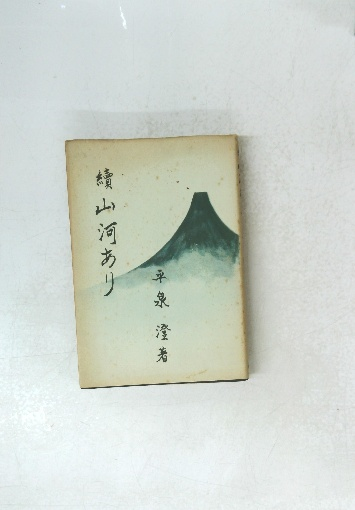 續山河あり
平泉澄著